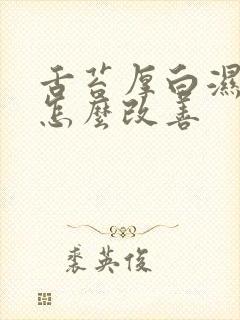 舌苔厚白濕
怎麼改善
裘英俊